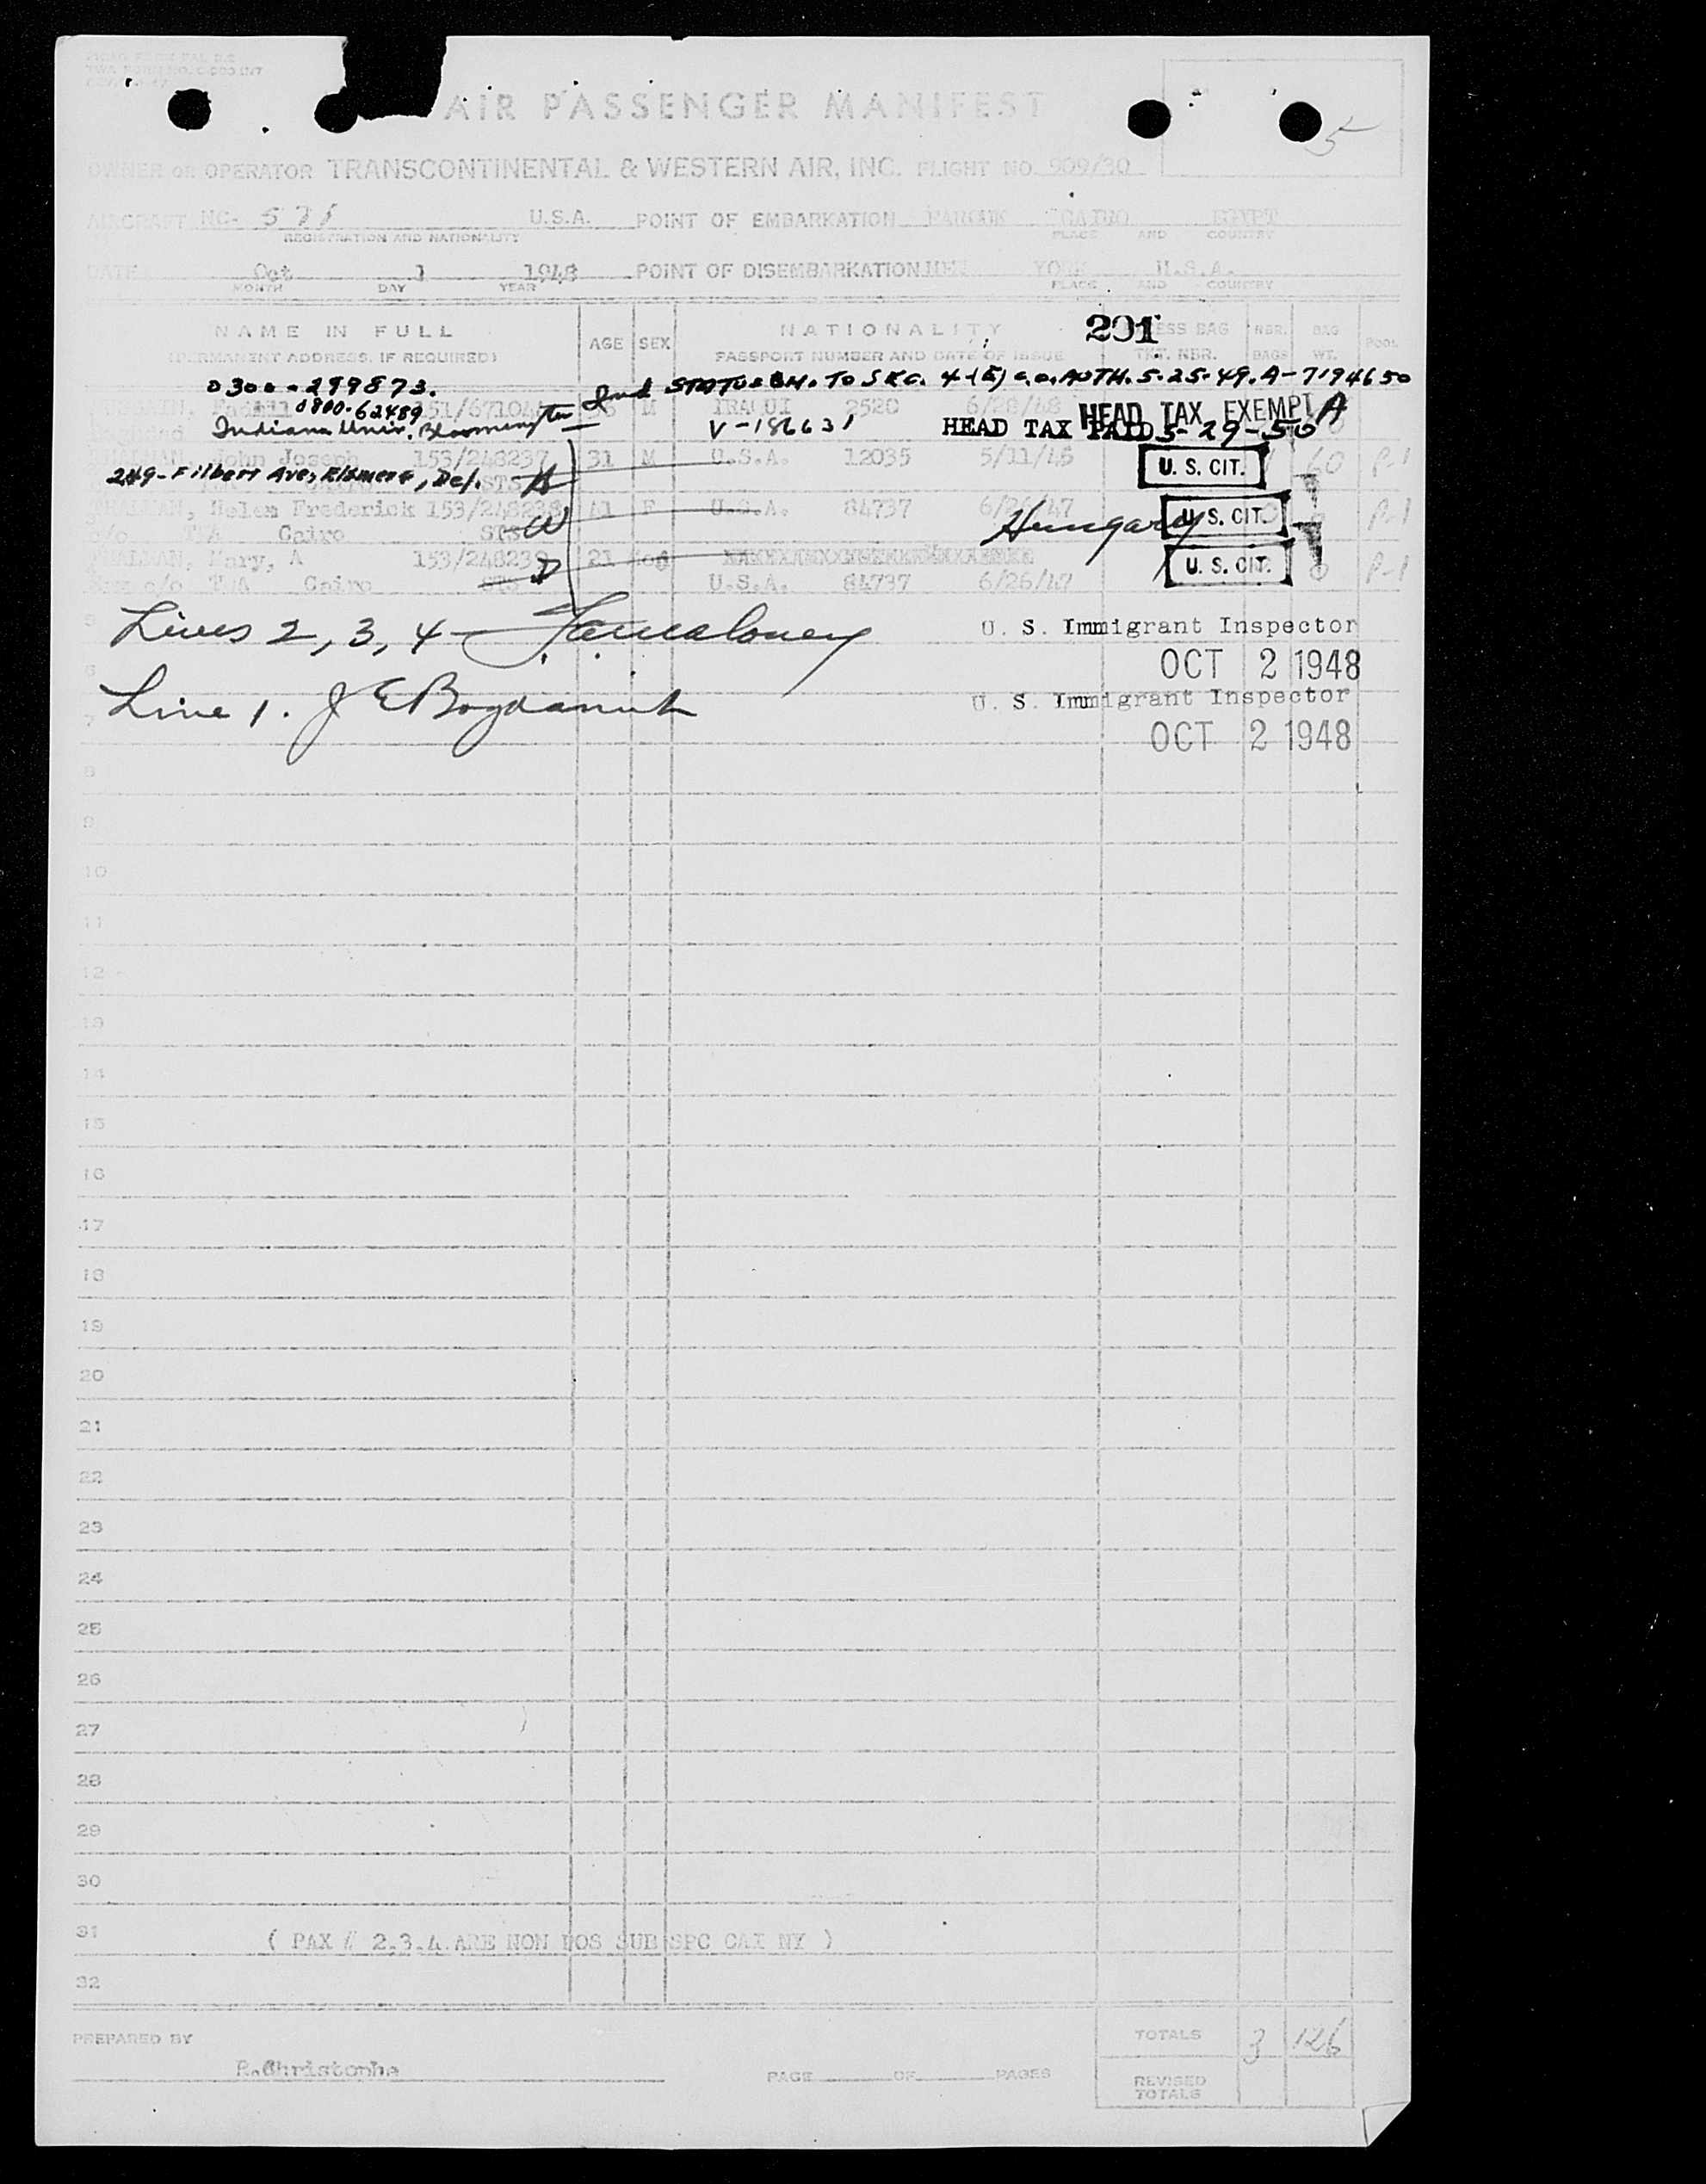 AIR PASSENGER MANIFEST
5
OWNER OR OPERATOR TRANSCONTINENTAL & WESTERN AIR, INC. FLIGHT NO. 909/30
AIRCRAFT NC- 571 U.S.A. POINT OF EMBARKATION FAROUK CAIRO EGYPT
REGISTRATION AND NATIONALITY PLACE AND COUNTRY
DATE Oct 1 1948 POINT OF DISEMBARKATION NEW YORK U.S.A.
MONTH DAY YEAR PLACE AND COUNTRY
NAME IN FULL AGE SEX NATIONALITY 291 EXCESS BAG NBR. BAG POOL
(PERMANENT ADDRESS, IF REQUIRED) PASSPORT NUMBER AND DATE OF ISSUE TKT. NBR. BAGS WT.
0300-299873. STATUS CH. TO SEC. 4-(E) C.O. AUTH. 5-25-49. A-7194650
0800-62489 M IRAQUI 2520 6/28/48 HEAD TAX EXEMPT A
Baghdad Indiana Univ. Bloomington V-186631 HEAD TAX PAID 5-29-50
John Joseph 153/248237 31 M U.S.A. 12035 5/11/45 U. S. CIT. 1 60 P-1
249-Filbert Ave, Elsmere, Del. STS H
Helen Frederick 153/248238 41 F U.S.A. 84737 6/26/47 Hungary U. S. CIT. P-1
c/o Cairo STS W
Mary, A 153/248239 21 U. S. CIT. P-1
c/o TWA Cairo STS D U.S.A. 84737 6/26/47
Lines 2, 3, 4 U. S. Immigrant Inspector
6 OCT 2 1948
7 Line 1. J E U. S. Immigrant Inspector
OCT 2 1948
8
9
10
11
12
13
14
15
16
17
18
19
20
21
22
23
24
25
26
27
28
29
30
31 ( PAX # 2.3.4 ARE NON POS SUB SPC CAI NY )
32
PREPARED BY R.Christophe PAGE OF PAGES TOTALS 3 126
REVISED TOTALS